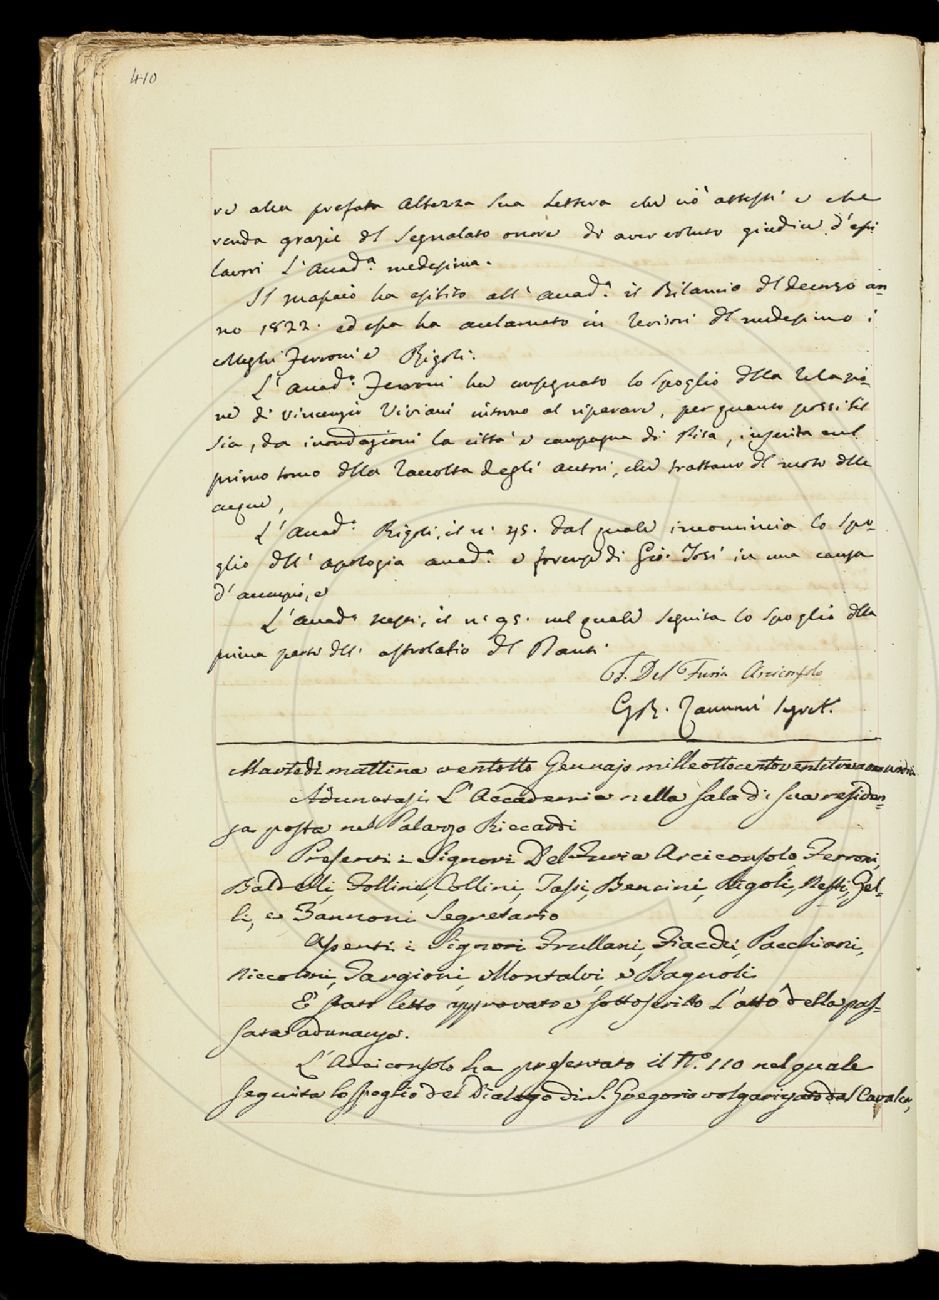 410
re alla prefata Altezza Sua Lettera che ciò attesti e che
renda grazie del segnalato onore di aver voluto giudice d'essi
lavori l'Accad.ª medesima.
Il massaio ha esibito all'Accad.ª il Bilancio del decorso an=
no 1822. ed essa ha acclamato in revisori del medesimo i
colleghi Ferroni e Rigoli.
L'Accad.º Ferroni ha consegnato lo spoglio della relazio=
ne di Vincenzio Viviani intorno al riparare, per quanto possibil
sia, da inondazioni la città e campagna di Pisa, inserita nel
primo tomo della raccolta degli autori, che trattano del moto delle
acque,
L'Accad.º Rigoli, il n.º 45. dal quale incomincia lo spo=
glio dell' apologia accad.ª e forense di Gio: Tosi in una causa
d'
L'Accad.º Nesti, il n.º 95. nel quale seguita lo spoglio della
prima parte dell' astrolabio del
F. Del Furia Arciconsolo
GB. Zannoni Segret.º
Martedì mattina ventotto Gennajo milleottocentoventitre
Adunatasi L'Accademia nella sala di sua residen=
za posta nel Palazzo Riccardi
Presenti i Signori Del Furia Arciconsolo, Ferroni,
Baldelli, Follini, Collini, Tassi, Bencini, Rigoli, Nesti, Gel=
li, e Zannoni Segretario
Assenti i Signori Frullani, Fiacchi, Pacchiani,
Niccolini, Targioni, Montalvi, e Bagnoli
E' stato letto approvato e sottoscritto L'atto della pas=
sata adunanza.
L'Arciconsolo ha presentato il N.º 110 nel quale
seguita lo spoglio del Dialogo di S. Gregorio volgarizzato dal Cavalca,